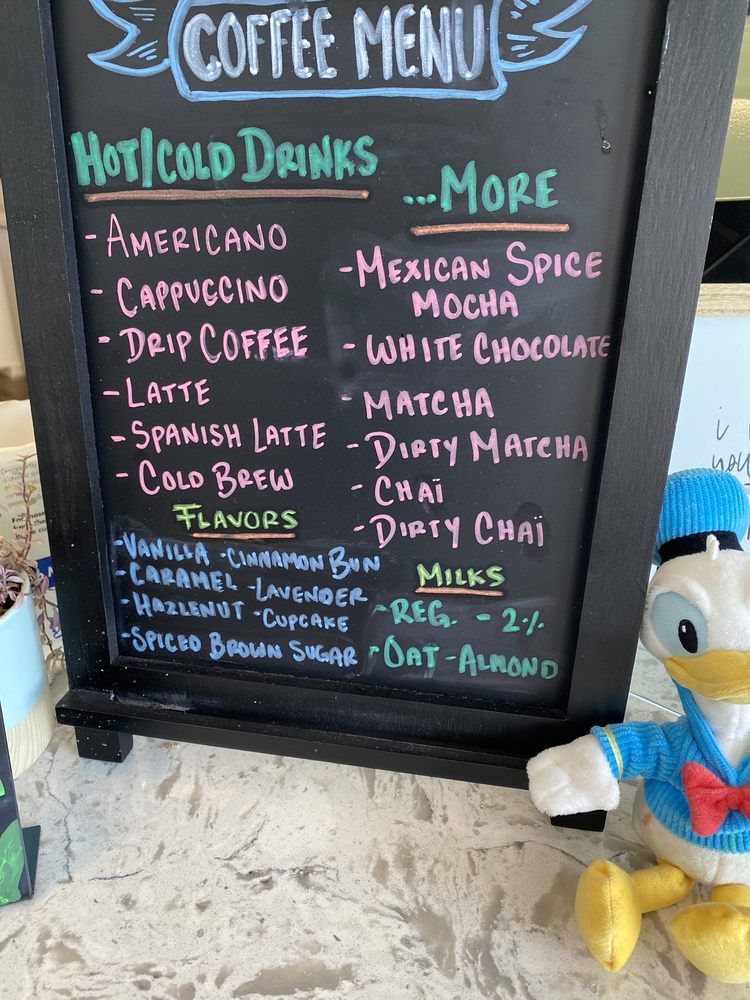 COFFEE MENU
HOT/COLD DRINKS
- AMERICANO
- CAPPUCCINO
- DRIP COFFEE
- LATTE
- SPANISH LATTE
- COLD BREW
...MORE
- MEXICAN SPICE
MOCHA
- WHITE CHOCOLATE
- MATCHA
- DIRTY MATCHA
- CHAÏ
- DIRTY CHAÏ
FLAVORS
- VANILLA - CINNAMON BUN
- CARAMEL - LAVENDER
- HAZLENUT - CUPCAKE
- SPICED BROWN SUGAR
MILKS
- REG. - 2%
- OAT - ALMOND